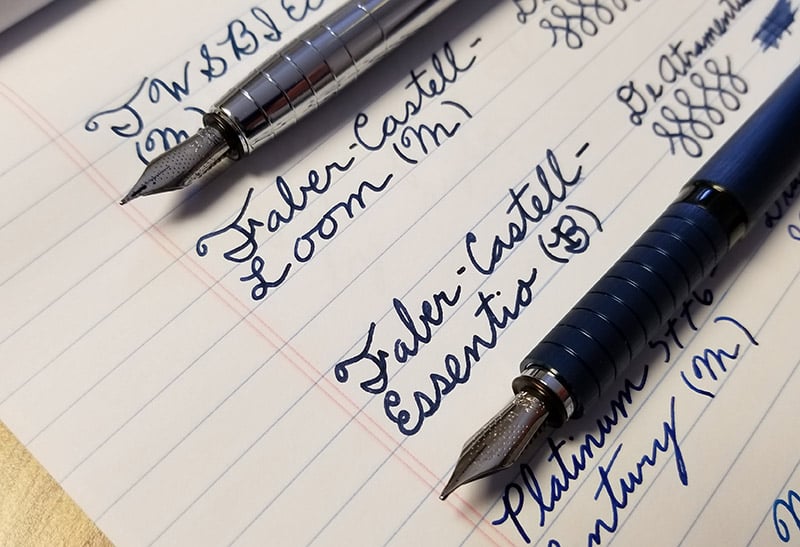 TWSBI
(M)
Faber-Castell-
Loom (M)
De Atramentis
Faber-Castell-
Essentio (B)
Platinum
Century (M)